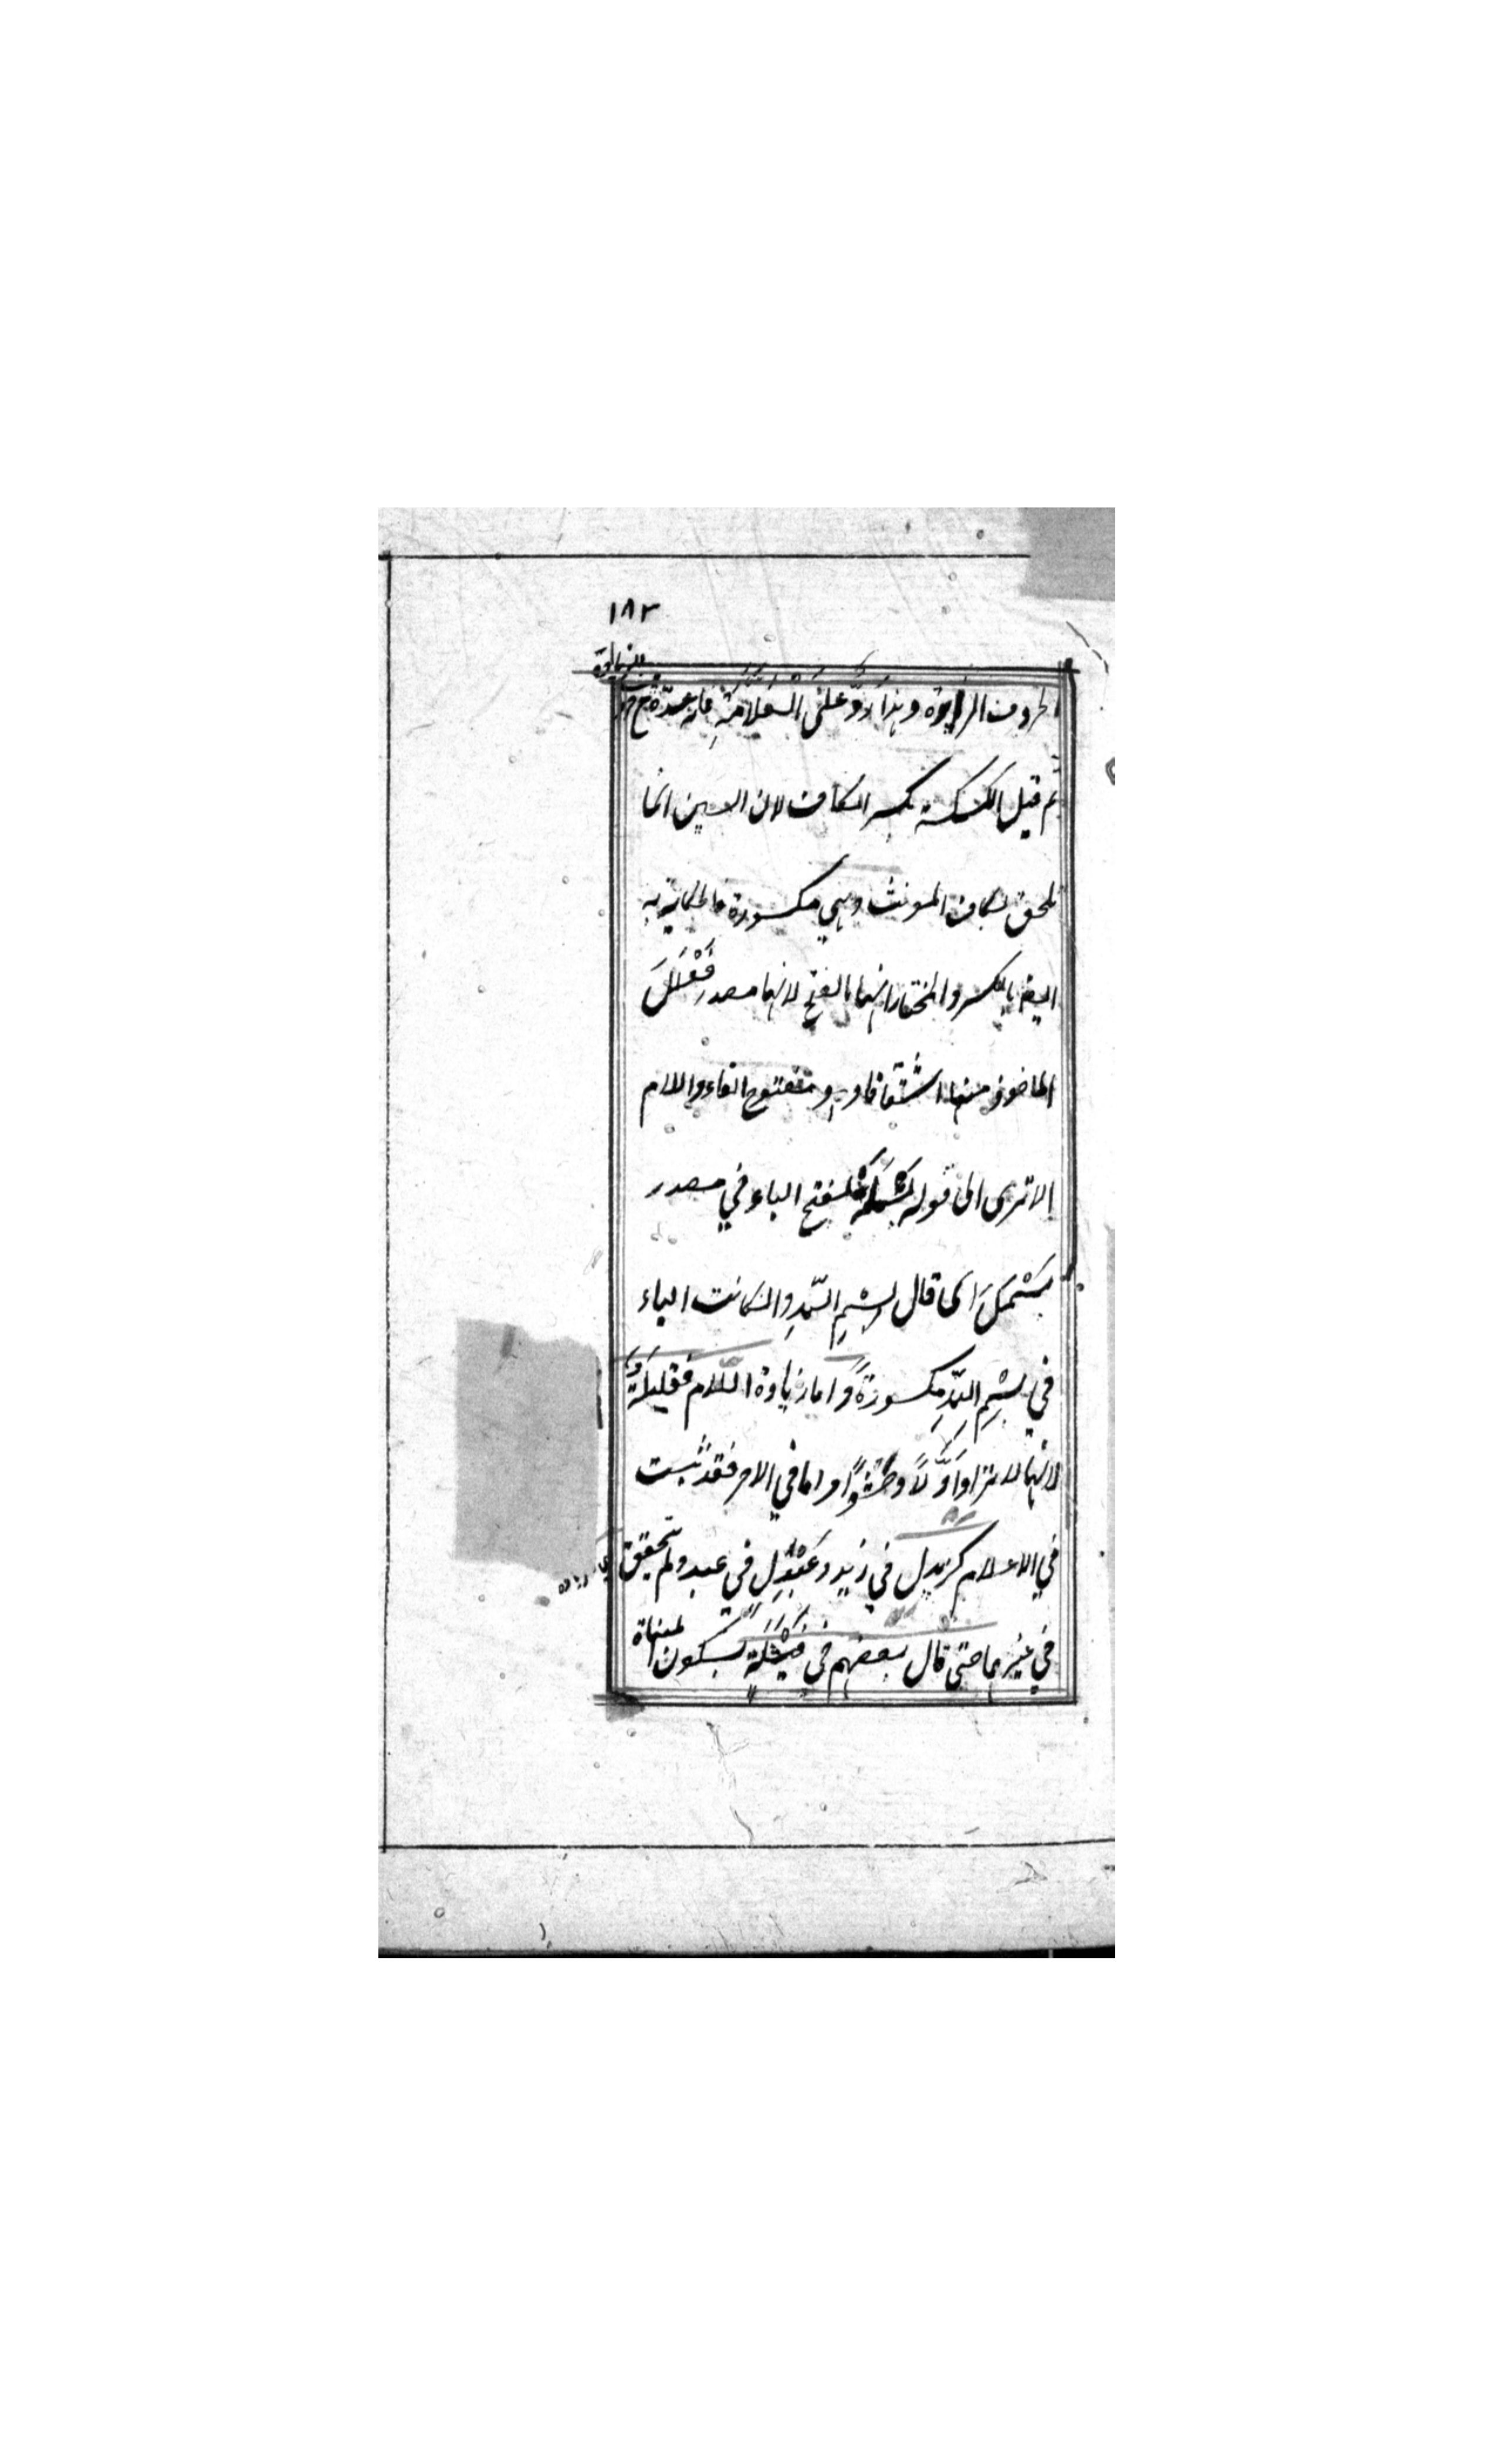 ١٨٣
الحروف الزايدة وهذا رَدٌّ علَى العَلَّامَةِ فانه عدّه مع حروف
الزيادة
ثم قيل الكسكسة بكسر الكاف لان السين انما
تلحق بكاف المونث وهي مكسورة فالحكاية به
ايضا بالكسر والمختار انها بالفتح لانها مصدر فَعْلَلَ
الماخوذ منها اشتقاقا وهو مفتوح الفاء واللام
الا ترى الى قوله بَسْمَلَة بفتح الباء في مصدر
بَسْمَلَ اى قال بِسْمِ اللّهِ وان كانت الباء
في بِسْمِ اللّهِ مكسورةً وَاما زيادة اللّام فقليلةٌ
لانها لا تزاد اَوَّلًا وحَشْوًا واما في الاخر فقد ثبت
في الاعلام كزيدل في زيد وعَبْدَلِ في عبد ولم تحقق
في غيرهما حتى قال بعضهم في فَيْشَلَةٍ بسكون المثناة